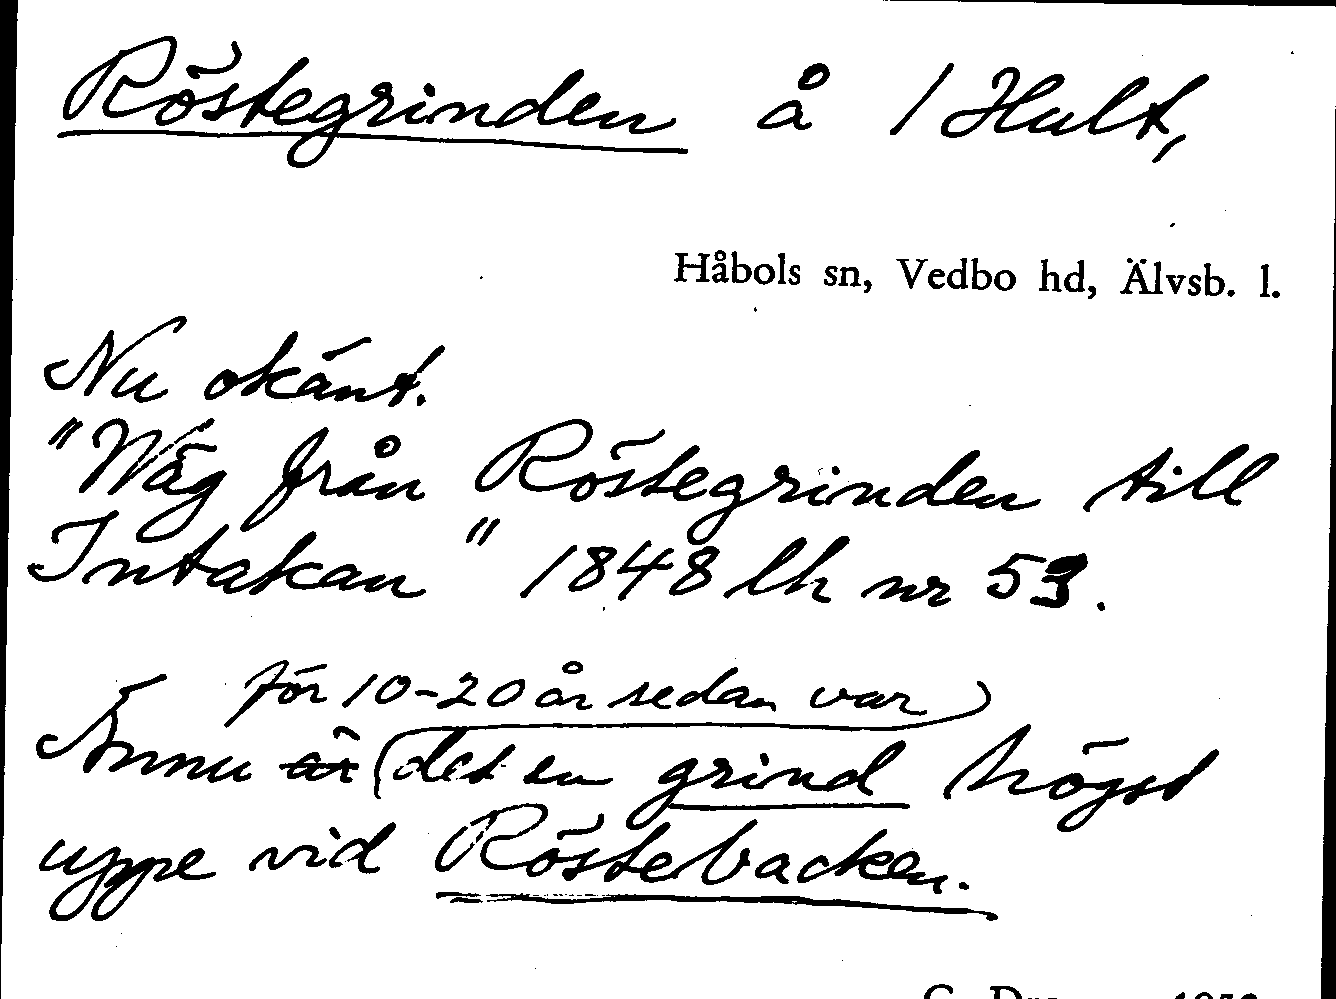 Röstegrinden å 1 Hult,
Håbols sn, Vedbo hd, Älvsb. l.
Nu okänt.
"Wäg från Röstegrinden till
Intakan" 1848 lh nr 53.
för 10-20 år sedan var
Ännu är det en grind högst
uppe vid Röstebacken.